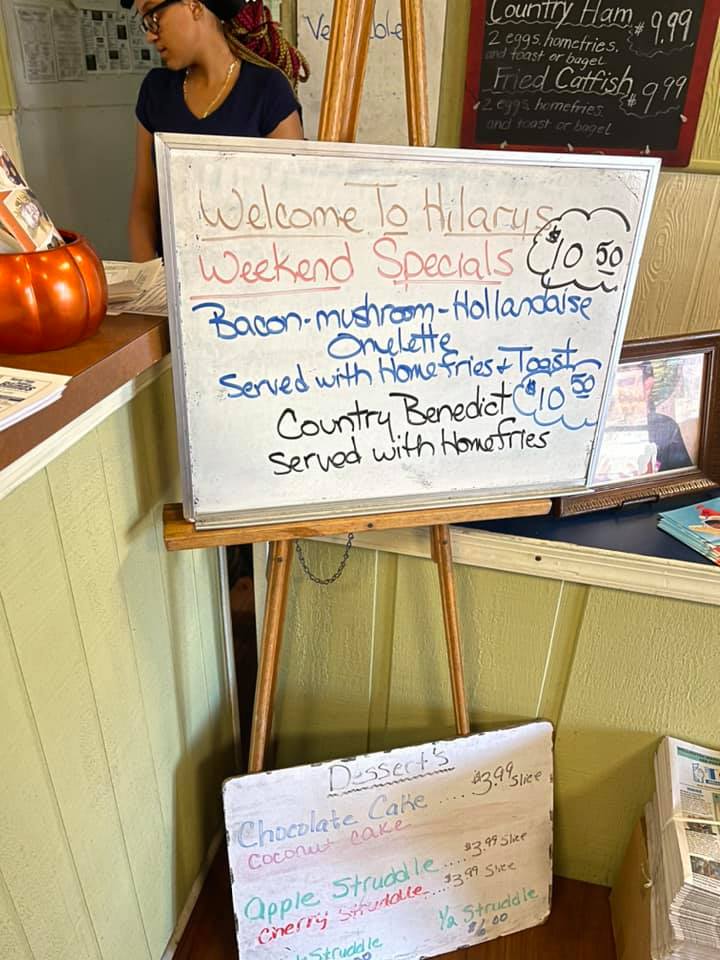 Vegetable
Country Ham $9.99
2 eggs, homefries,
and toast or bagel
Fried Catfish $9.99
2 eggs homefries
and toast or bagel
Welcome To Hilarys
Weekend Specials $10 50
Bacon-mushroom-Hollandaise
Omelette
Served with Homefries + Toast
Country Benedict $10 50
served with Homefries
Dessert's
Chocolate Cake .... $3.99 slice
Coconut Cake
Apple Struddle ..... $3.99 Slice
Cherry Struddle .... $3.99 Slice
Struddle
1/2 Struddle
$6.00